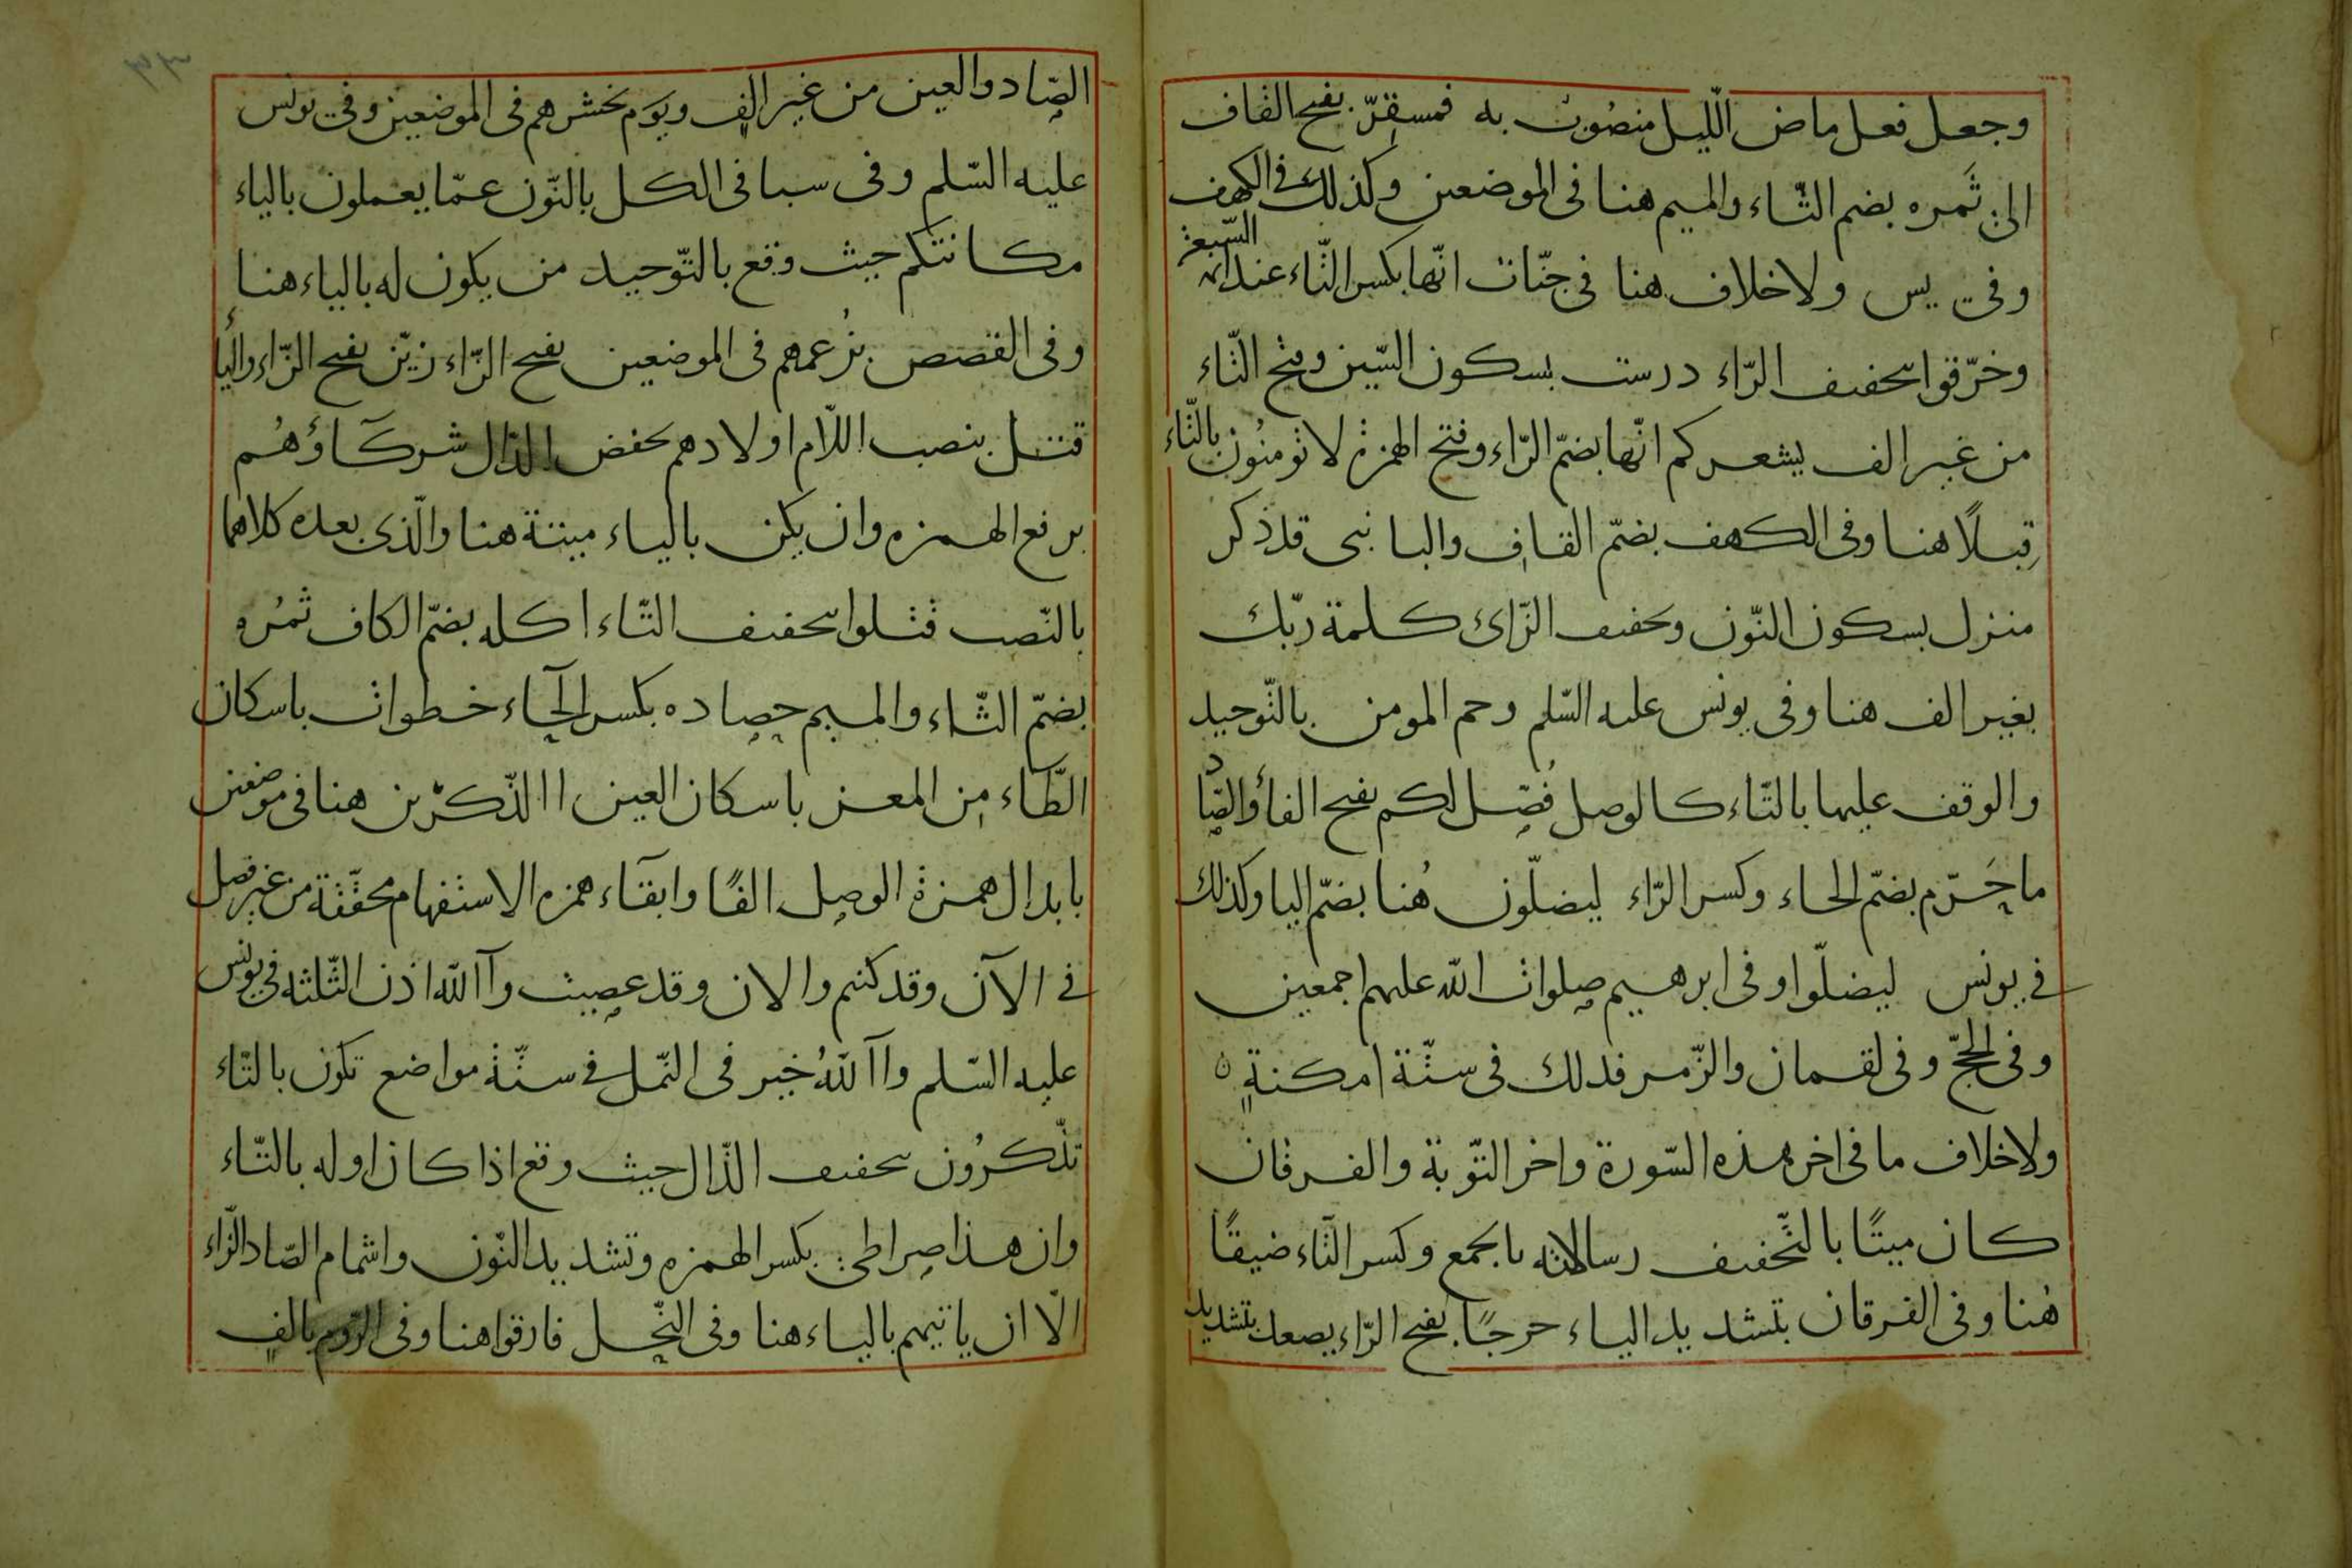 وجعل فعل ماض الّليل منصُوب به فمستقرّ بفتح القاف
الى ثَمره بضم الثّاء والميم هنا فى الموضعين وكذلك فى الكهف
وفى يس ولا خلاف هنا فى جنّات انّها بكسر التّاء عند ائمة السّبعة
وخرّقوا بتحفيف الرّاء درست بسكون السّين وفتح التّاء
من غير الف يشعركم انّها بضمّ الرّاء وفتح الهمزة لا تومنُون بالتّاء
قِبلًا هنا وفى الكهف بضمّ القاف والبا نبى قد ذكر
منزل بسكون النّون وتخفيف الزّاى كلمة ربّك
بغير الف هنا وفى يونس عليه السّلم وحم المومن بالتّوحيد
والوقف عليها بالتّاء كالوصل فُصّل لكم بفتح الفاء والصّاد
ما حَرّم بضمّ الحاء وكسر الرّاء ليضلّون هُنا بضمّ اليا وكذلك
فى يونس ليضلّوا وفى ابرهيم صلوات الله عليهم اجمعين
وفى الحجّ وفى لقمان والزّمر فذلك فى ستّة امكنةٍ ٥
ولا خلاف ما فى اخر هذه السّورة واخر التّوبة والفرقان
كان ميتًا بالتّخفيف رسالاته بالجمع وكسر التّاء ضيقًا
هُنا وفى الفرقان بتشديد الياء حرجًا بفتح الرّاء يصعد بتشديد
الصّاد والعين من غير الف ويوم نحشرهم فى الموضعين وفى يونس
عليه السّلم وفى سبا فى الكل بالنّون عمّا يعملون بالياء
مكانتكم حيث وقع بالتّوحيد من يكون له بالياء هنا
وفى القصص بزُعمهم فى الموضعين بفتح الزّاء زيّن بفتح الزّاء والياء
قتل بنصب اللّام اولادهم بخفض الدّال شركَاؤُهُم
برفع الهمزه وان يكن بالياء ميتة هنا والّذى بعده كلاهما
بالنّصب قتلوا بتحفيف التّاء اكله بضمّ الكاف ثمُره
بضمّ الثّاء والميم حصاده بكسر الحآء خطوات باسكان
الطّاء من المعز باسكان العين االذّكرْين هنا فى موضعين
بابدال همزة الوصل الفًا وابقآء همزه الاستفهام محقّقة من غير فصل
فى الآن وقد كنتم والان وقد عصيت وآالله اذن الثّلثه فى يونس
عليه السّلم واآللهُ خير فى النّمل فى ستّة مواضع تكون بالتّاء
تذّكرُون بتحفيف الذّال حيث وقع اذا كان اوله بالتّاء
وان هذا صراطى بكسر الهمزه وتشديد النّون واشمام الصّاد الزّاء
الّا ان ياتيهم بالياء هنا وفى النّحل فارقوا هنا وفى الرّوم بالف